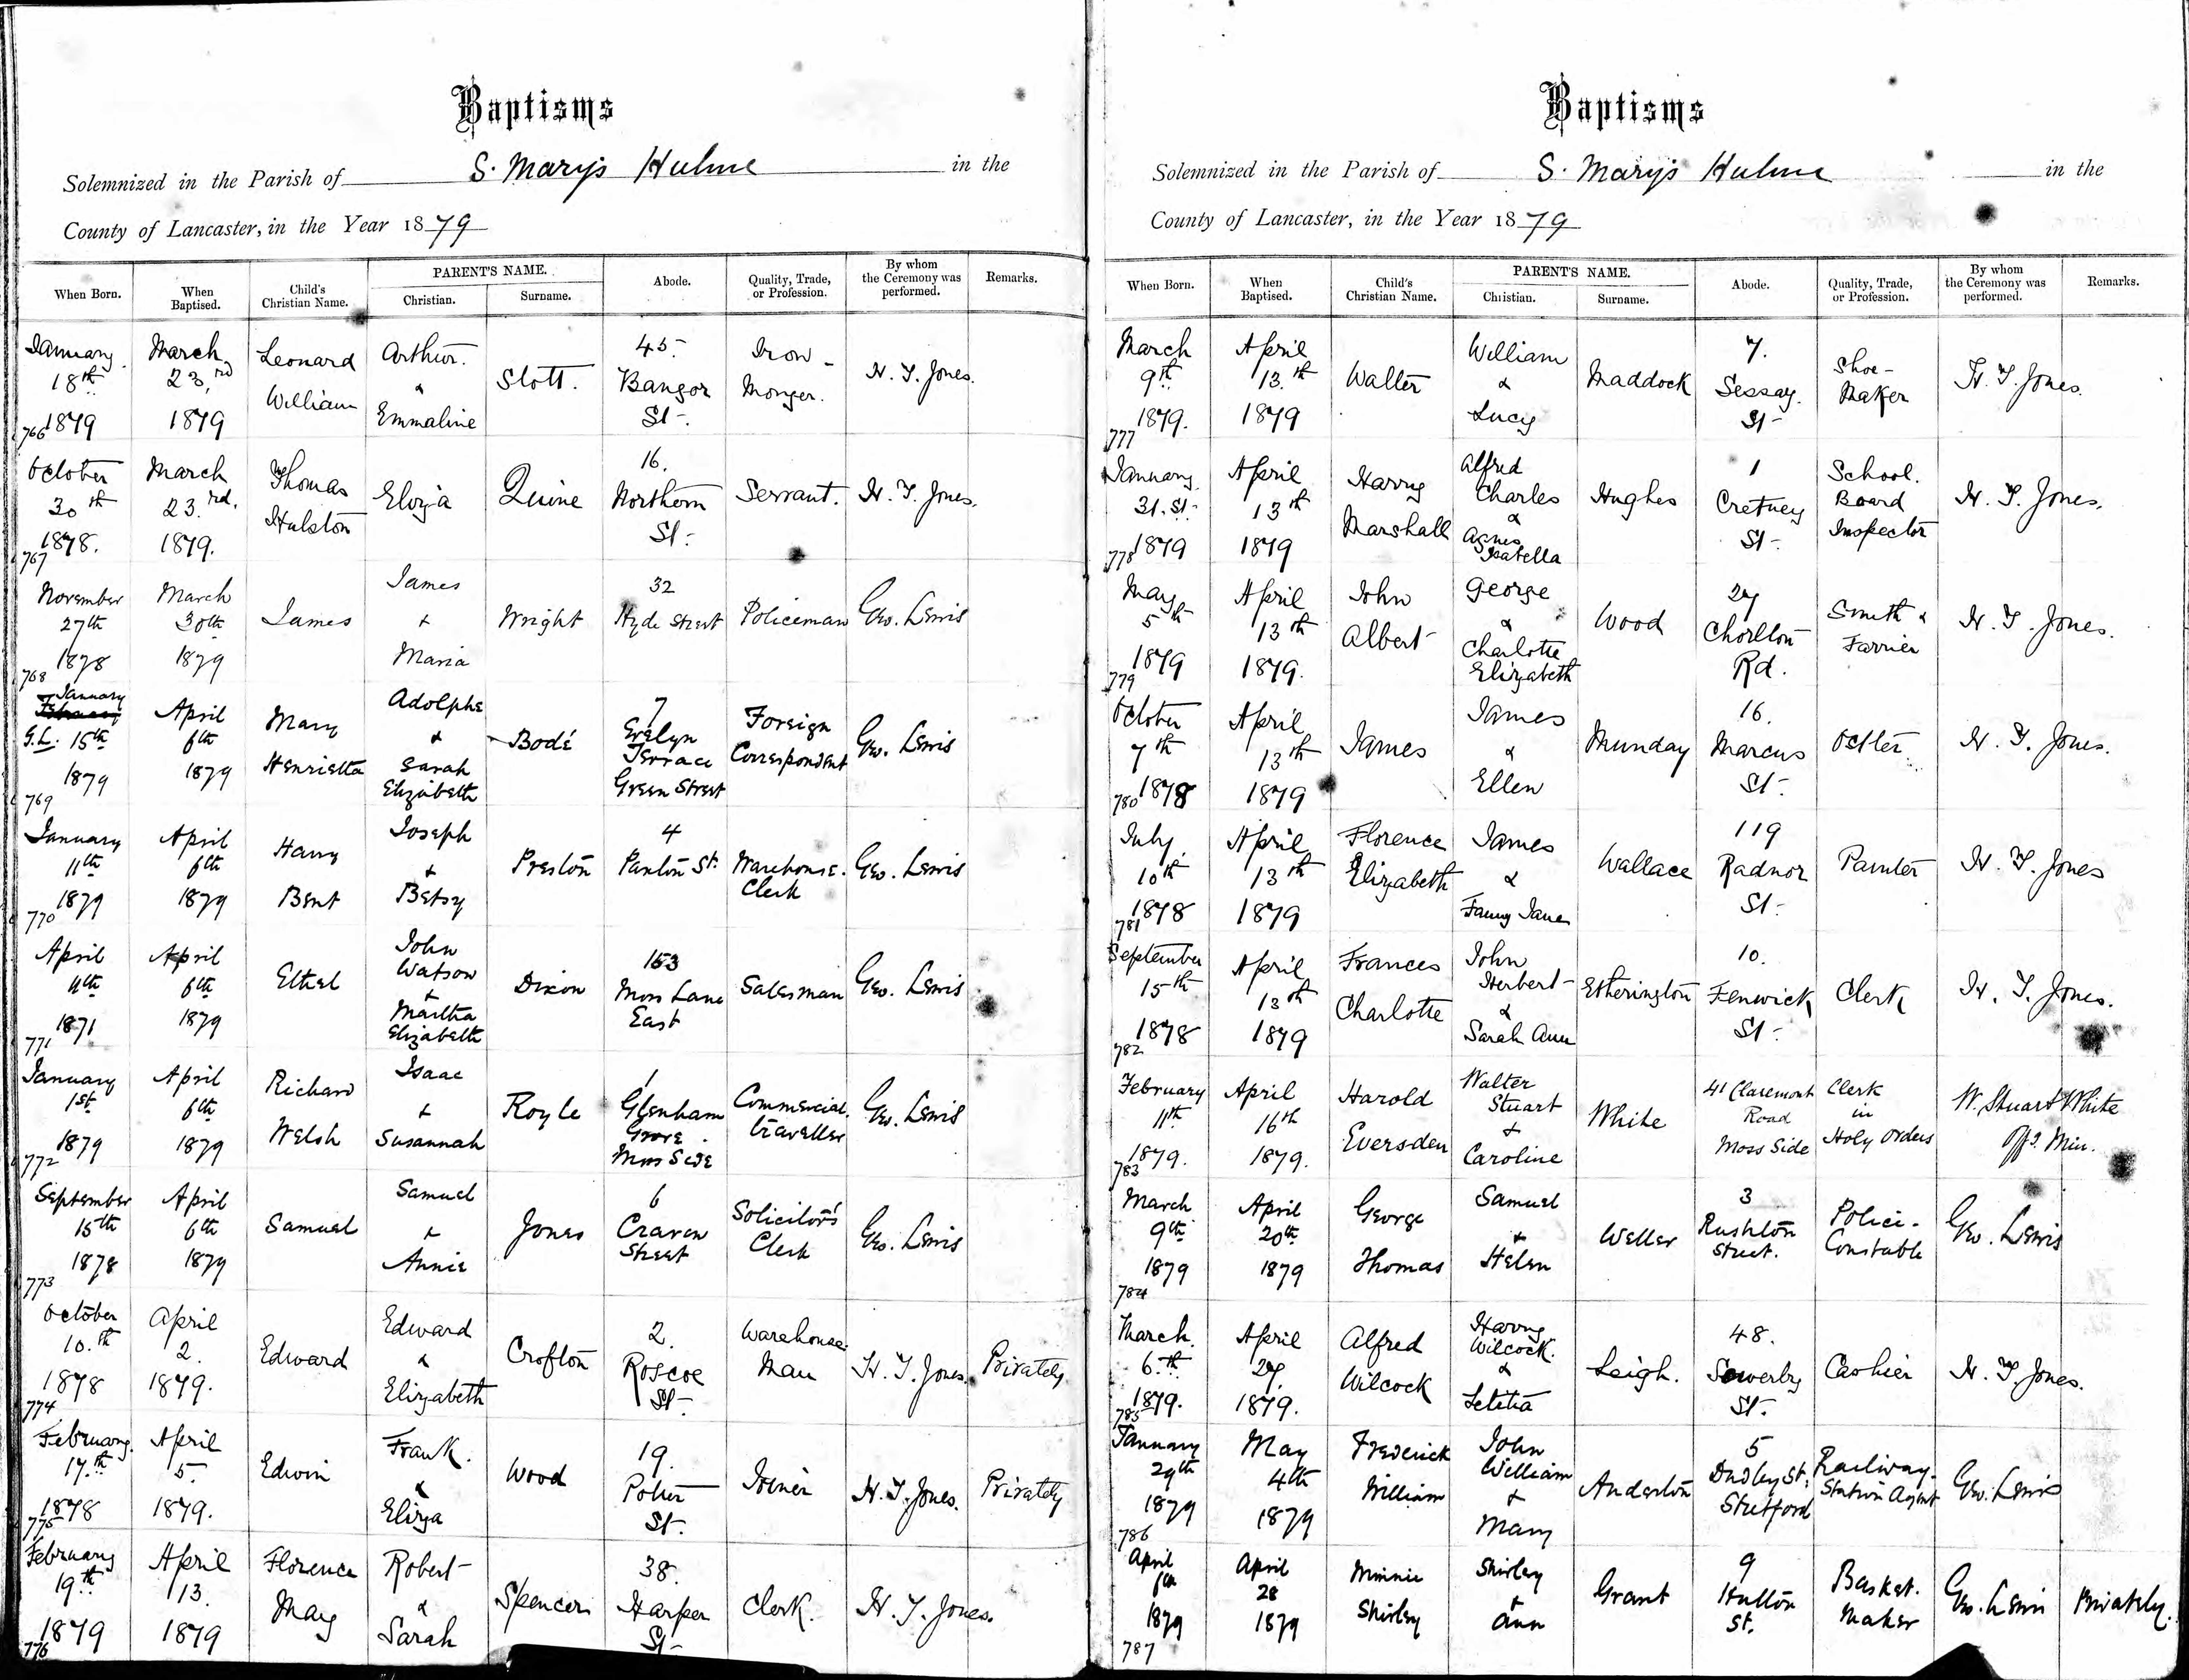 Baptisms
Solemnized in the Parish of S. Mary's Hulme in the
County of Lancaster, in the Year 1879
When Born. When Baptised. Child's Christian Name. PARENT'S NAME. Christian. Surname. Abode. Quality, Trade, or Profession. By whom the Ceremony was performed. Remarks.
766 January 18th 1879 March 23rd 1879 Leonard William Arthur & Emmaline Stott. 45. Bangor St. Iron-Monger. H. T. Jones.
767 October 30th 1878. March 23rd. 1879. Thomas Hulston Eliza Quine 16. Northern St. Servant. H. T. Jones.
768 November 27th 1878 March 30th 1879 James James & Maria Wright 32 Hyde Street Policeman Geo. Lewis
769 January February G.L. 15th 1879 April 6th 1879 Mary Henrietta Adolphe & Sarah Elizabeth Bodé 7 Evelyn Terrace Green Street Foreign Correspondent Geo. Lewis
770 January 11th 1879 April 6th 1879 Harry Bent Joseph & Betsy Preston 4 Panton St. Warehouse. Clerk Geo. Lewis
771 April 11th 1871 April 6th 1879 Ethel John Watson & Martha Elizabeth Dixon 153 Moss Lane East Salesman Geo. Lewis
772 January 1st 1879 April 6th 1879 Richard Welsh Isaac & Susannah Royle 1 Glenham Grove. Moss Side Commercial traveller Geo. Lewis
773 September 15th 1878 April 6th 1879 Samuel Samuel & Annie Jones 6 Craven Street Solicitor's Clerk Geo. Lewis
774 October 10.th 1878 April 2. 1879. Edward Edward & Elizabeth Crofton 2. Roscoe St. Warehouse. Man H. T. Jones. Privately
775 February. 17.th 1878 April 5. 1879. Edwin Frank. & Eliza Wood 19. Poher St. Joiner H. T. Jones. Privately
776 February 19th 1879 April 13. 1879 Florence Mary Robert & Sarah Spencer 38. Harper St. Clerk. H. T. Jones.
Baptisms
Solemnized in the Parish of S. Mary's Hulme in the
County of Lancaster, in the Year 1879
When Born. When Baptised. Child's Christian Name. PARENT'S NAME. Christian. Surname. Abode. Quality, Trade, or Profession. By whom the Ceremony was performed. Remarks.
777 March 9th 1879. April 13.th 1879 Walter William & Lucy Maddock 7. Sessay. St. Shoe-Maker H. T. Jones.
778 January 31.st 1879 April 13th 1879 Harry Marshall Alfred Charles & Agnes Isabella Hughes 1 Cretney St. School. Board Inspector H. T. Jones.
779 May 5th 1879 April 13th 1879. John Albert George & Charlotte Elizabeth Wood 27 Chorlton Rd. Smith & Farrier H. T. Jones.
780 October 7th 1878 April 13th 1879 James James & Ellen Munday 16. Marcus St. Ostler H. T. Jones.
781 July 10th 1878 April 13th 1879 Florence Elizabeth James & Fanny Jane Wallace 119 Radnor St. Painter H. T. Jones
782 September 15th 1878 April 13th 1879 Frances Charlotte John Herbert & Sarah Ann Etherington 10. Fenwick St. Clerk H. T. Jones.
783 February 11th 1879. April 16th 1879. Harold Eversden Walter Stuart & Caroline White 41 Claremont Road Moss Side Clerk in Holy Orders W. Stuart White Offg. Min.
784 March 9th 1879 April 20th 1879 George Thomas Samuel & Helen Weller 3 Rushton Street. Police-Constable Geo. Lewis
785 March. 6.th 1879. April 27. 1879. Alfred Wilcock Harry Wilcock. & Letitia Leigh. 48. Sowerby St. Cashier H. T. Jones.
786 January 29th 1879 May 4th 1879 Frederick William John William & Mary Anderton 5 Dudley St. Stretford Railway-Station Agent Geo. Lewis
787 April 6th 1879 April 28 1879 Minnie Shirley Shirley & Ann Grant 9 Hutton St. Basket. Maker Geo. Lewis Privately.